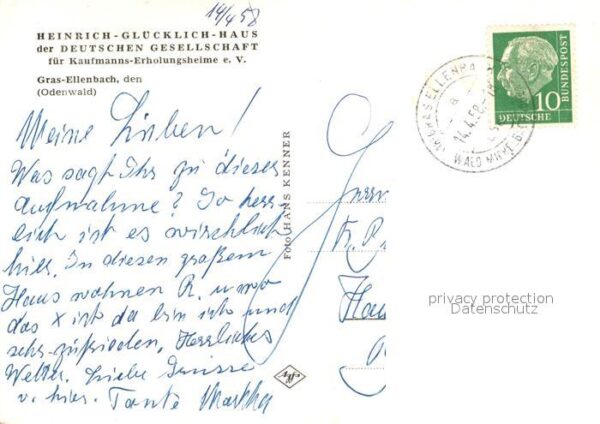 14/4 58
HEINRICH-GLÜCKLICH-HAUS
der DEUTSCHEN GESELLSCHAFT
für Kaufmanns-Erholungsheime e. V.
Gras-Ellenbach, den
(Odenwald)
Meine Lieben!
Was sagt Ihr zu dieser
Aufnahme? So herr-
lich ist es wirklich
hier. In diesem großem
Haus wohnen R. u. wo
das x ist da bin ich und
sehr zufrieden. Herrliches
Wetter. Liebe Grüsse
v. hier. Tante Martha
Foto HANS KENNER
Agfa
GRAS ELLENBA
14.4.58
10
DEUTSCHE
BUNDESPOST
Hau
privacy protection
Datenschutz